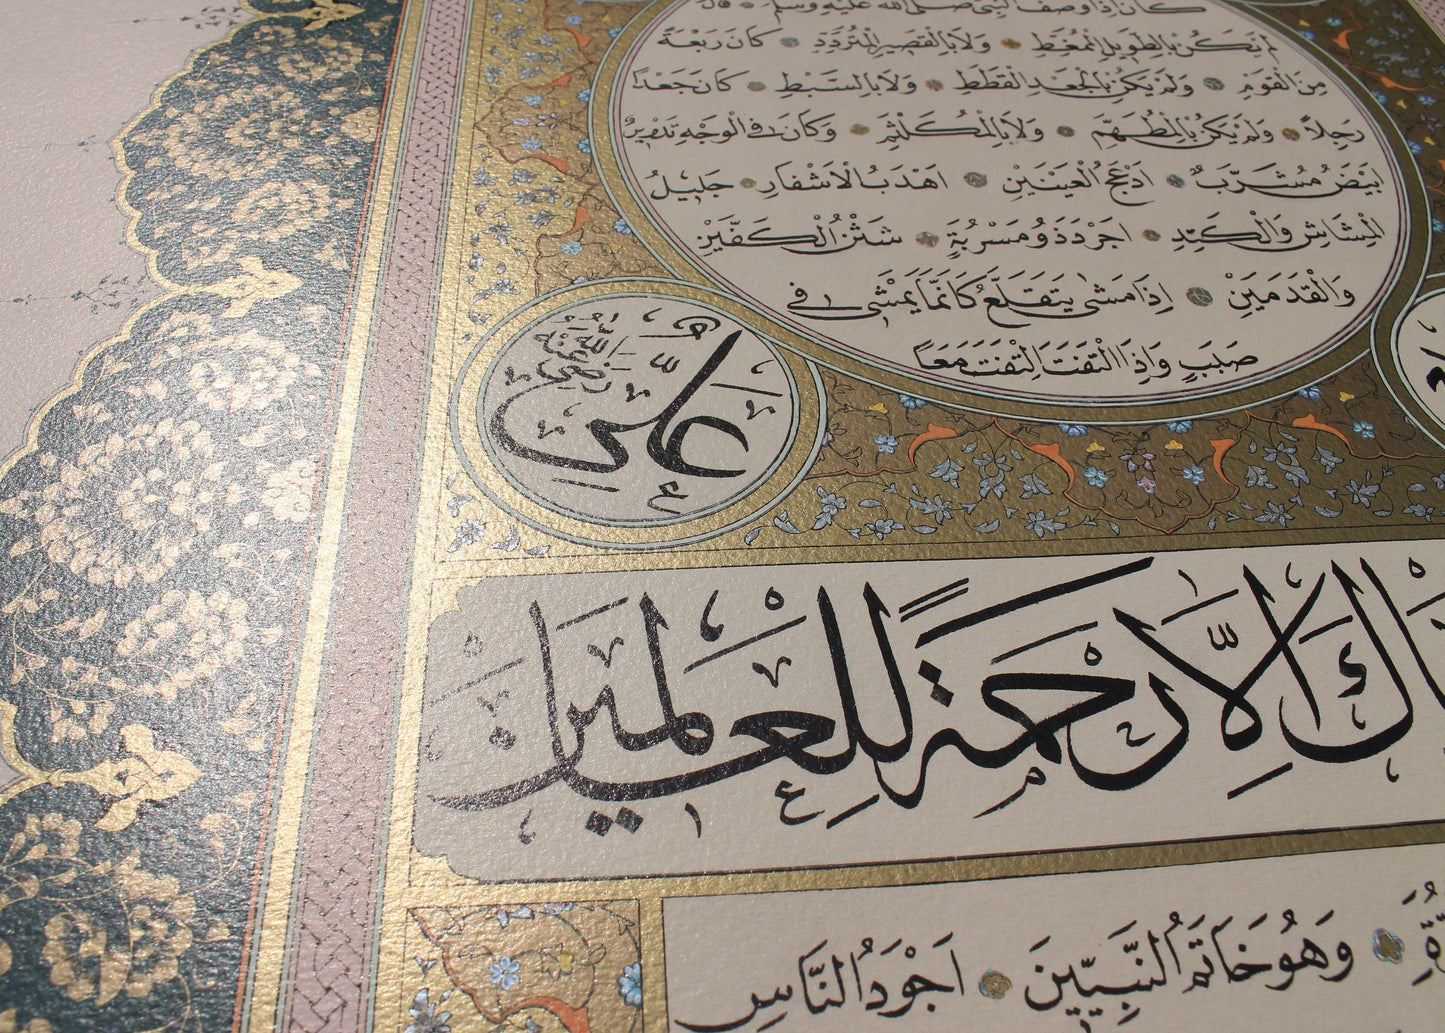 كَانَ إِذَا وَصَفَ النَّبِيَّ صَلَّى اللهُ عَلَيْهِ وَسَلَّمَ قَالَ
لَمْ يَكُنْ بِالطَّوِيلِ الْمُمَّغِطِ وَلَا بِالْقَصِيرِ الْمُتَرَدِّدِ كَانَ رَبْعَةً
مِنَ الْقَوْمِ وَلَمْ يَكُنْ بِالْجَعْدِ الْقَطَطِ وَلَا بِالسَّبْطِ كَانَ جَعْدًا
رَجِلًا وَلَمْ يَكُنْ بِالْمُطَهَّمِ وَلَا بِالْمُكَلْثَمِ وَكَانَ فِي الْوَجْهِ تَدْوِيرٌ
اَبْيَضُ مُشْرَبٌ اَدْعَجُ الْعَيْنَيْنِ اَهْدَبُ الْاَشْفَارِ جَلِيلُ
الْمُشَاشِ وَالْكَتِدِ اَجْرَدُ ذُو مَسْرُبَةٍ شَثْنُ الْكَفَّيْنِ
وَالْقَدَمَيْنِ اِذَا مَشَى يَتَقَلَّعُ كَاَنَّمَا يَمْشِي فِي
صَبَبٍ وَاِذَا الْتَفَتَ الْتَفَتَ مَعًا
عَلِيّ رَضِيَ اللهُ عَنْهُ
نَاكَ اِلَّا رَحْمَةً لِلْعَالَمِينَ
وَهُوَ خَاتَمُ النَّبِيِّينَ اَجْوَدُ النَّاسِ